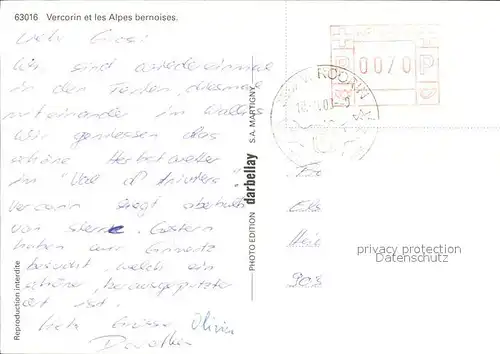 63016 Vercorin et les Alpes bernoises.
Wir sind wiedereinmal
in den Ferien, diesmal
miteinander im Wallis
Wir geniessen das
schöne Herbstwetter
im "Val d'Anniviers"
Vercorin liegt oberhalb
von Sierre. Gestern
haben wir Grimentz
besucht, welch ein
schöner, herausgeputzter
Ort ist.
Liebe Grüsse Olivier
Dorothea
Reproduction interdite
PHOTO EDITION darbellay S.A. MARTIGNY
0070
privacy protection
Datenschutz